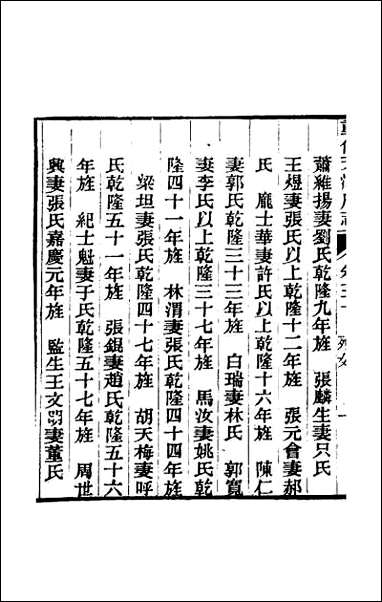 蕭維揚妻劉氏乾隆九年旌 張麟生妻只氏
王煜妻張氏以上乾隆十二年旌 張元會妻郝
氏 龐士華妻許氏以上乾隆十六年旌 陳仁
妻郭氏乾隆三十三年旌 白瑞妻林氏 郭寬
妻李氏以上乾隆三十七年旌 馬汝妻姚氏乾
隆四十一年旌 林渭妻張氏乾隆四十四年旌
梁坦妻張氏乾隆四十七年旌 胡天梅妻呼
氏乾隆五十一年旌 張錕妻趙氏乾隆五十六
年旌 紀士魁妻于氏乾隆五十七年旌 周世
興妻張氏嘉慶元年旌 監生王文明妻董氏